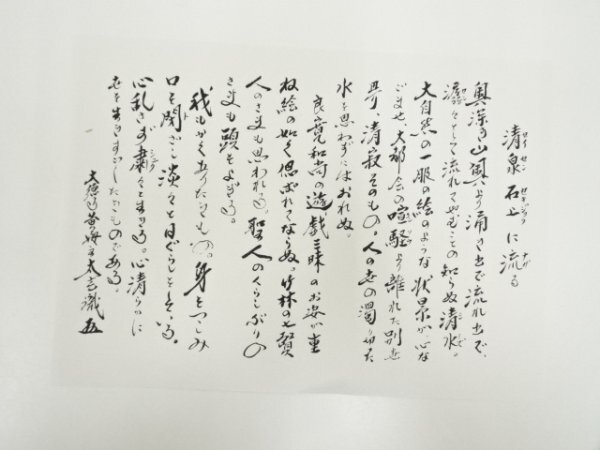 清泉石上に流る
セイセン セキジョウ ナガ
奥深き山奥より涌き出で流れ出で、
潺々として流れてやむことの知らぬ清水。
大自然の一服の絵のような状景が心な
ごませ、大都会の喧騒より離れた別世
界り、清寂そのもの。人の世の濁り切た
水を思わずにはおれぬ。
良寛和尚の遊戯三昧のお姿が重
ね絵の如く偲ばれてならぬ。竹林の七賢
人のさまも思われる。聖人のくらしぶりの
さまも頭をよぎる。
我もかくありたいもの。身をつつみ
口を閉ざし淡々と日ぐらしをする。
心乱さず粛々と生きる。心清らかに
世を生きすごしたきものである。
大徳寺黄梅 太玄識